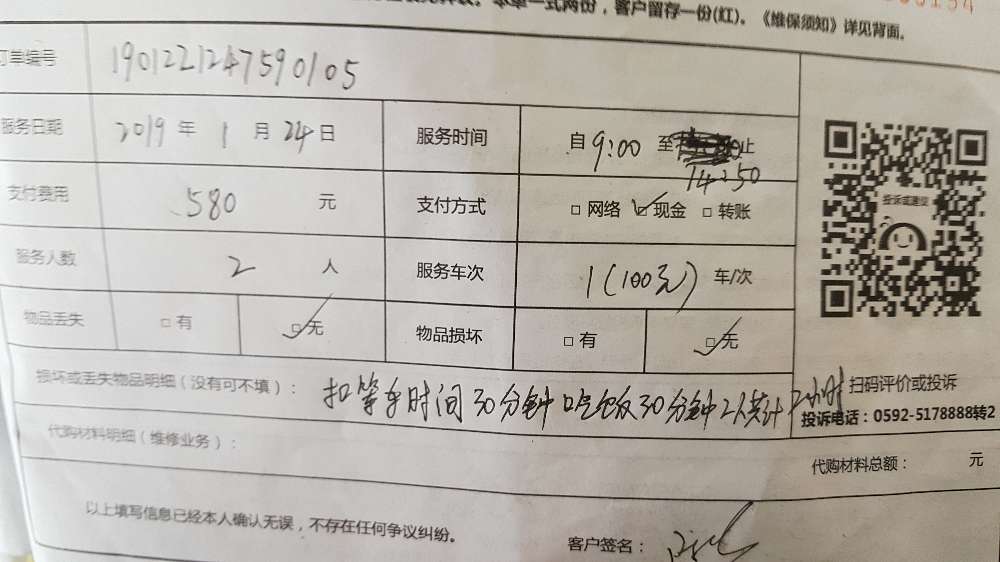 本单一式两份，客户留存一份(红)。《维保须知》详见背面。
订单编号 190122124759 0105
服务日期 2019 年 1 月 24 日 服务时间 自 9:00 至 止
14:50
支付费用 580 元 支付方式 □ 网络 ☑ 现金 □ 转账
投诉或建议
服务人数 2 人 服务车次 1(100元) 车/次
物品丢失 □ 有 ☑ 无 物品损坏 □ 有 ☑ 无
损坏或丢失物品明细（没有可不填）： 扣等车时间30分钟 吃饭30分钟 2人共计2小时
扫码评价或投诉
投诉电话：0592-5178888转2
代购材料明细（维修业务）：
代购材料总额： 元
以上填写信息已经本人确认无误，不存在任何争议纠纷。
客户签名：